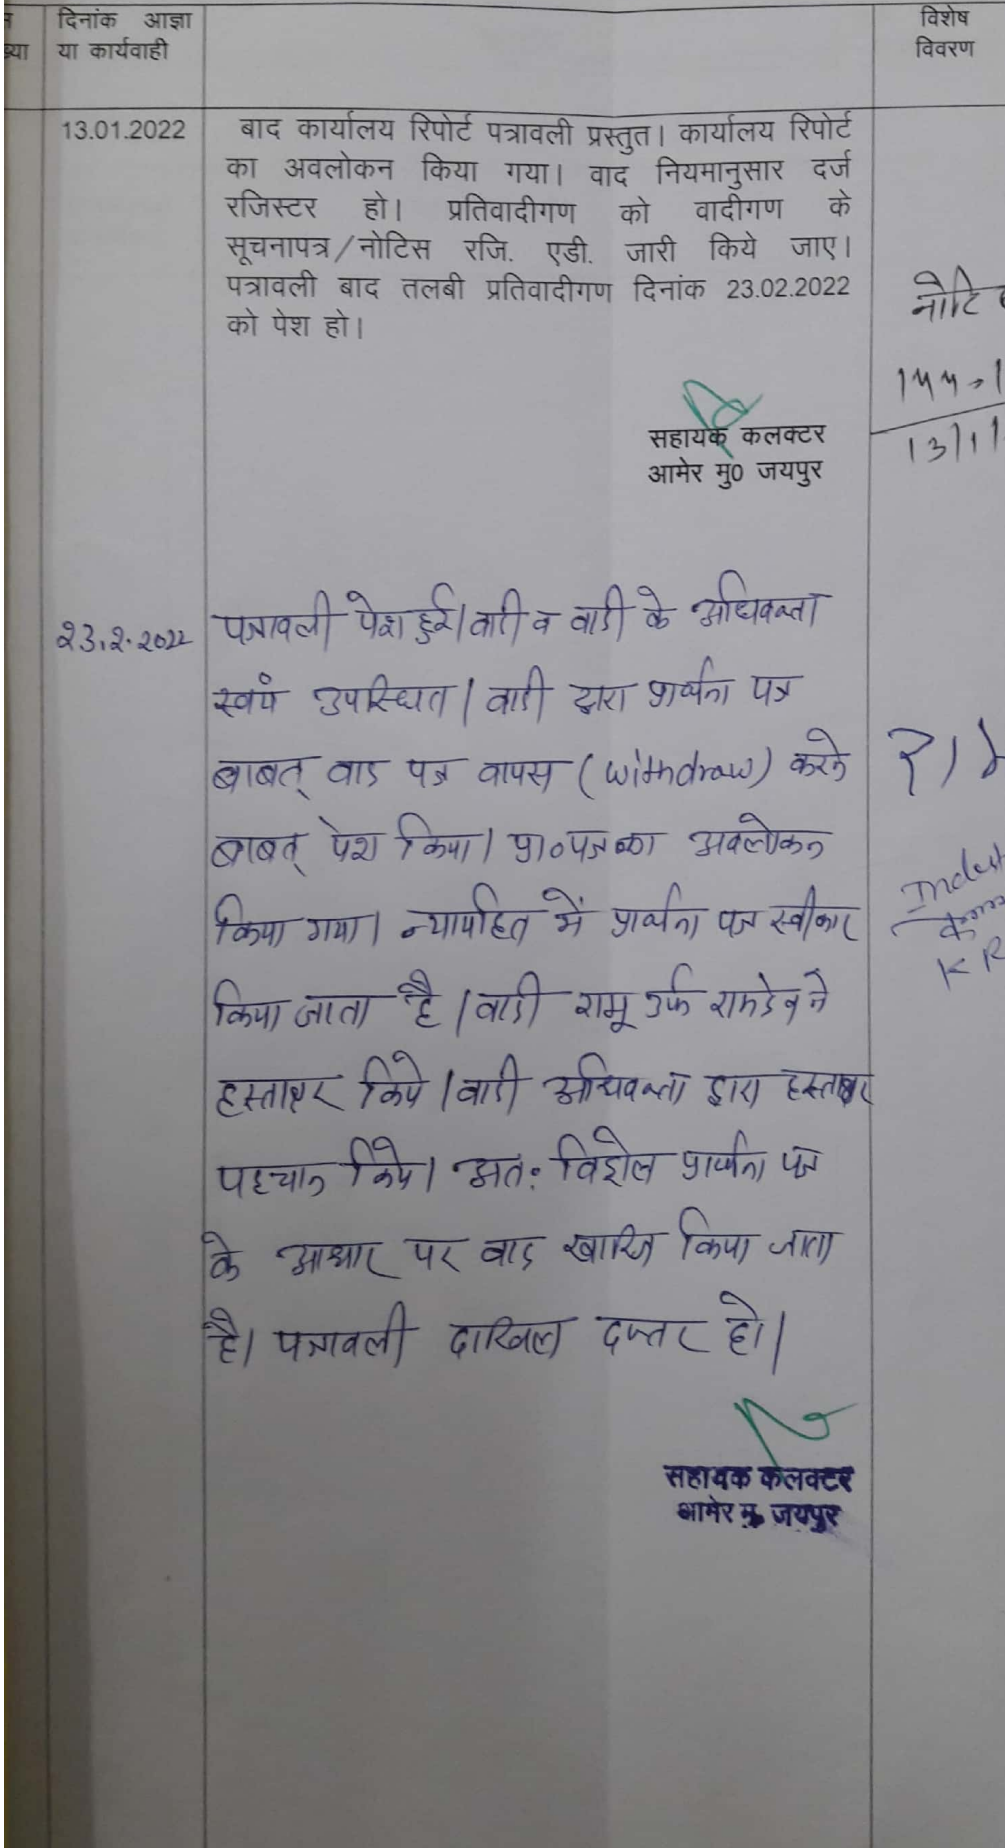 दिनांक आज्ञा
या कार्यवाही
विशेष
विवरण
13.01.2022
बाद कार्यालय रिपोर्ट पत्रावली प्रस्तुत। कार्यालय रिपोर्ट
का अवलोकन किया गया। वाद नियमानुसार दर्ज
रजिस्टर हो। प्रतिवादीगण को वादीगण के
सूचनापत्र/नोटिस रजि. एडी. जारी किये जाए।
पत्रावली बाद तलबी प्रतिवादीगण दिनांक 23.02.2022
को पेश हो।
सहायक कलक्टर
आमेर मु0 जयपुर
23.2.2022
पत्रावली पेश हुई। वादी व वादी के अधिवक्ता
स्वयं उपस्थित। वादी द्वारा प्रार्थना पत्र
बाबत् वाद पत्र वापस (withdraw) करने
बाबत् पेश किया। प्रा०पत्र का अवलोकन
किया गया। न्यायहित में प्रार्थना पत्र स्वीकार
किया जाता है। वादी रामू उर्फ रामदेव ने
हस्ताक्षर किये। वादी अधिवक्ता द्वारा हस्ताक्षर
पहचान किये। अतः प्रार्थना पत्र
के आधार पर वाद खारिज किया जाता
है। पत्रावली दाखिल दफ्तर हो।
सहायक कलक्टर
आमेर मु. जयपुर